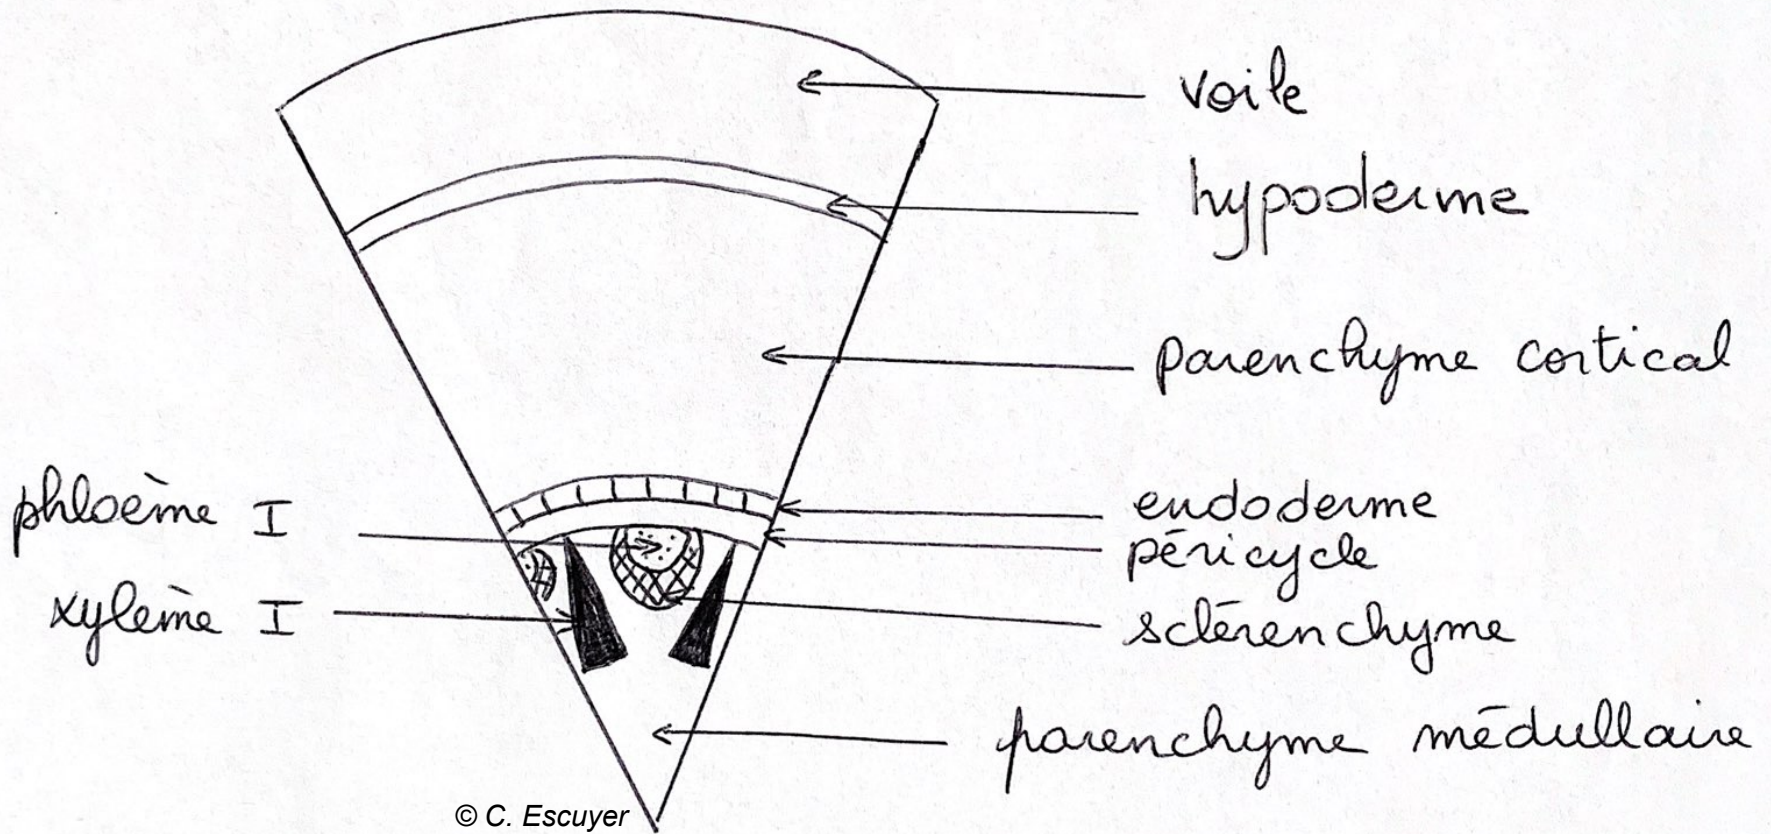 voile
hypoderme
parenchyme cortical
phloème I
endoderme
péricycle
xylème I
sclérenchyme
parenchyme médullaire
© C. Escuyer